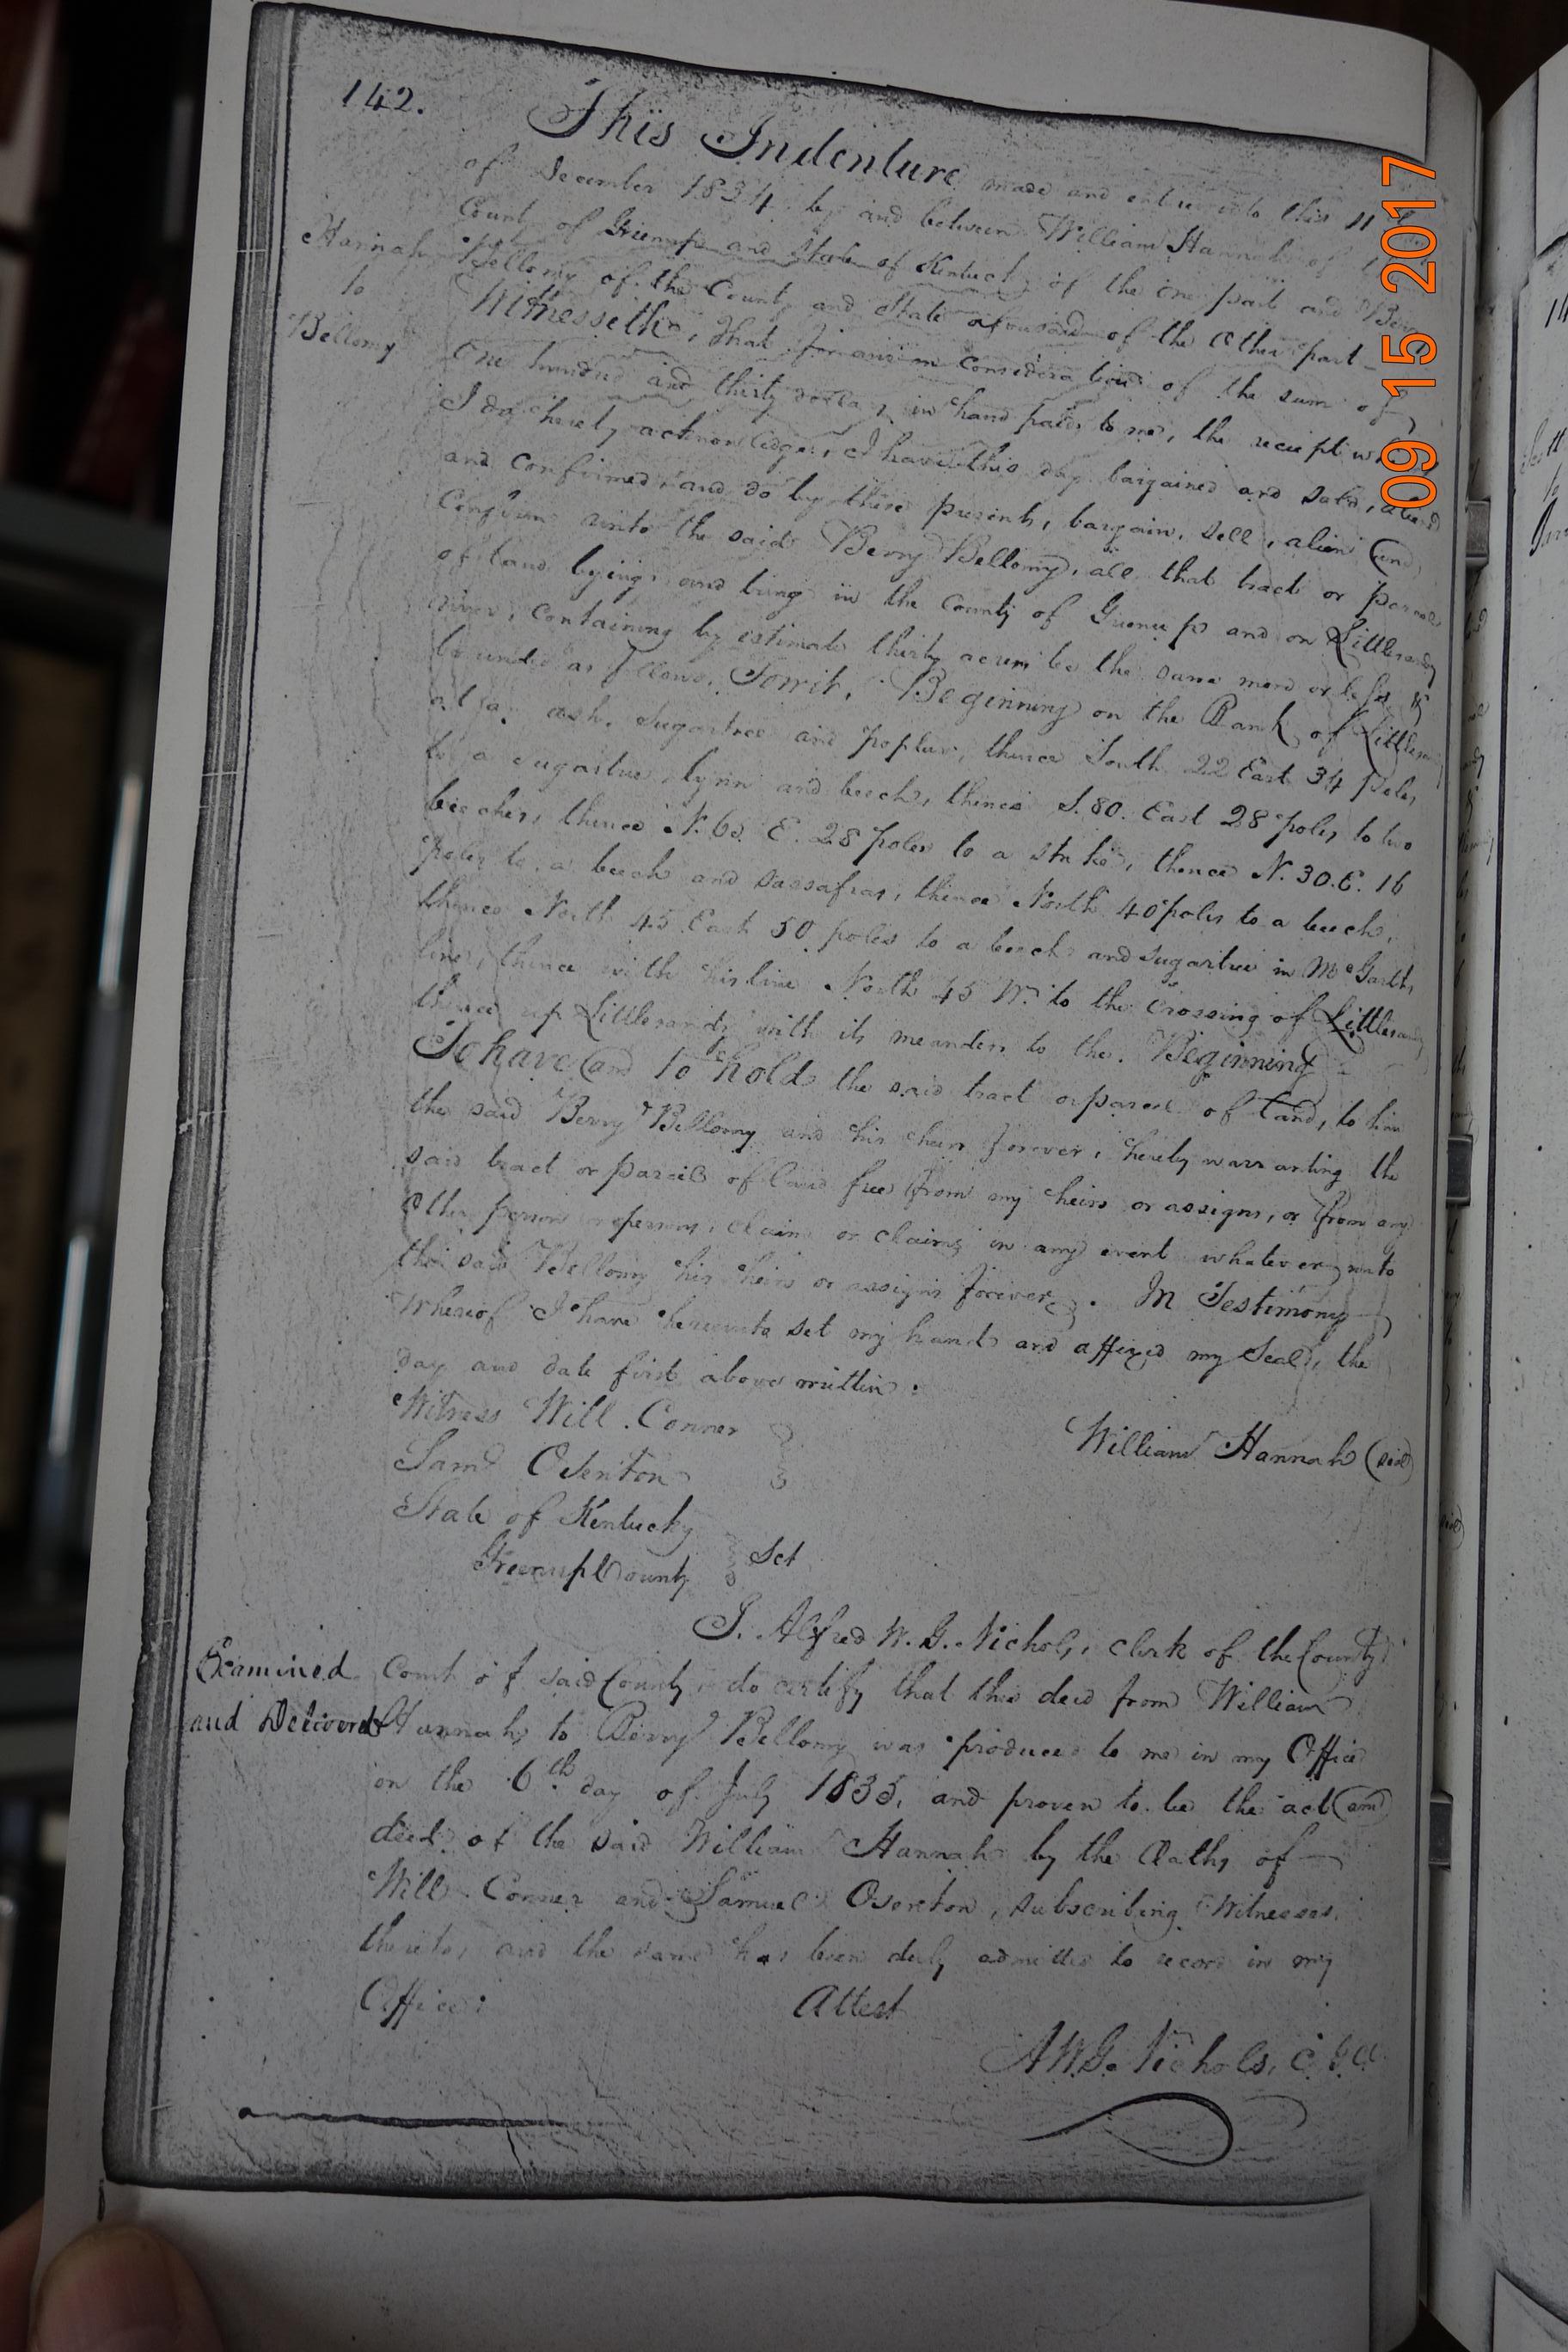 142.
This Indenture made and entered into this 11
of December 1834 by and between William Hannah of
County of Greenup and State of Kentucky of the one part and Berry
Hannah
to
Bellomy
Bellomy of the County and State aforesaid of the other part
Witnesseth, that for and in consideration of the sum of
One hundred and thirty dollars in hand paid to me, the receipt
I do hereby acknowledge, I have this day bargained and sold,
and confirmed, and do by these presents, bargain, sell, alien and
confirm unto the said Berry Bellomy, all that tract or
of land lying and being in the County of Greenup and on Littlesandy
river, containing by estimate thirty acres be the same more or less &
bounded as follows, Towit, Beginning on the Bank of
at an ash, Sugartree and poplar, thence South 22 East 34 poles
to a sugartree lynn and beech, thence S. 80. East 28 poles to two
beeches, thence N. 65 E. 28 poles to a stake, thence N. 30. E. 16
poles to a beech and sassafras, thence North 40 poles to a beech,
thence North 45 East 50 poles to a beech and sugartree in
line, thence with his line North 45 W. to the crossing of Littlesandy
thence up Littlesandy with its meanders to the Beginning
To have and to hold the said tract or parcel of land, to him
the said Berry Bellomy and his heirs forever, hereby warranting the
said tract or parcel of land free from my heirs or assigns, or from any
other person or persons, claim or claims in any event whatever unto
the said Bellomy his heirs or assigns forever. In Testimony
Whereof I have hereunto set my hand and affixed my Seal, the
day and date first above written.
Witness Will. Conner
William Hannah (seal)
Saml Osenton
State of Kentucky
Greenup County } Sct
I. Alfred W. G. Nichols, clerk of the County
Examined
and Delivered
Court of said County do certify that this deed from William
Hannah to Berry Bellomy was produced to me in my Office
on the 6th day of July 1835, and proven to be the act and
deed of the said William Hannah by the Oaths of
Will. Conner and Samuel Osenton, subscribing Witnesses
thereto, and the same has been duly admitted to record in my
Office:
Attest
A.W.G. Nichols, C.G.C.
09 15 2017